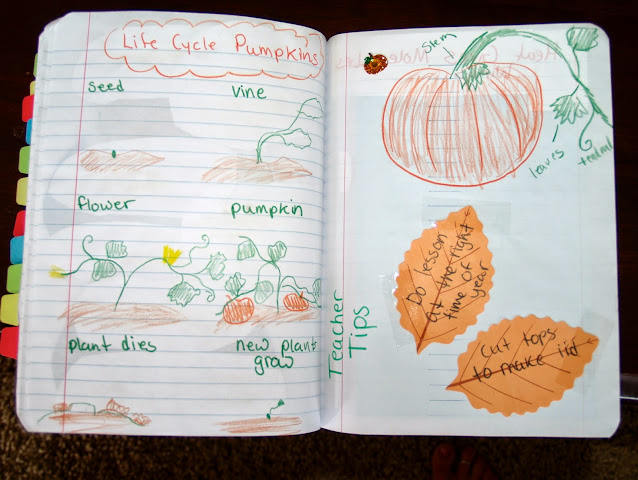 Life Cycle Pumpkins
seed
vine
flower
pumpkin
plant dies
new plant
grow
Stem
leaves
tendril
Teacher
Tips
Do lesson
at the right
time of
year
cut tops
to make lid